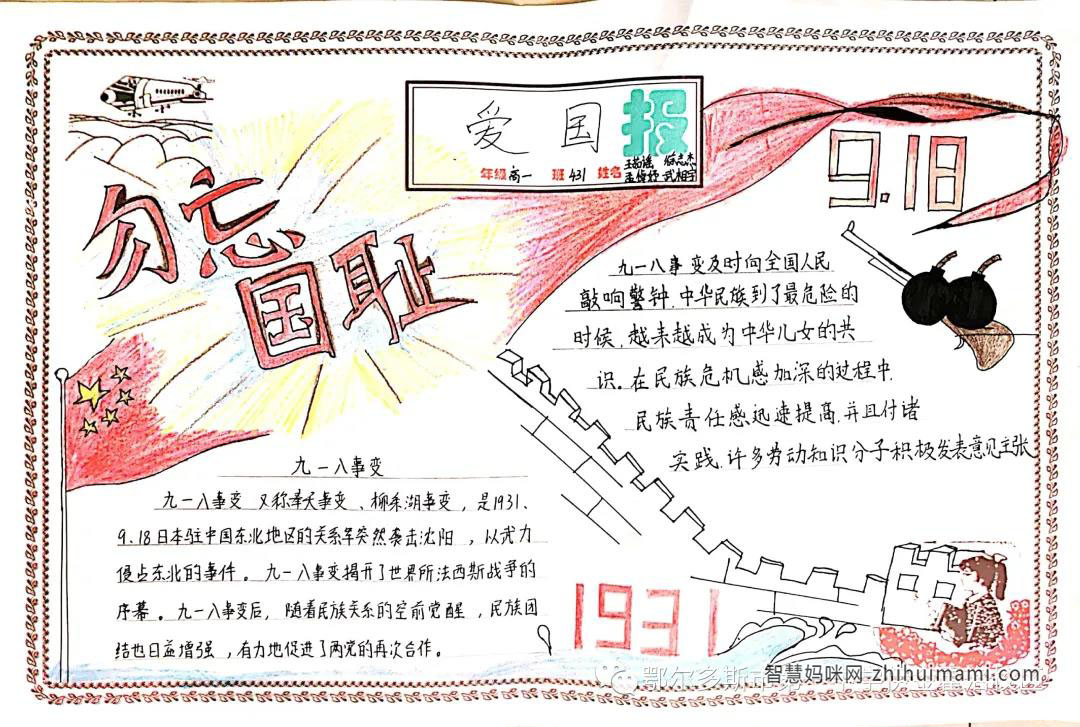 爱国报
年级 高一 班 431 姓名
勿忘
国耻
9.18
九一八事变及时向全国人民
敲响警钟.中华民族到了最危险的
时候,越来越成为中华儿女的共
识。在民族危机感加深的过程中,
民族责任感迅速提高,并且付诸
实践,许多劳动知识分子积极发表意见主张
九一八事变
九一八事变 又称奉天事变、柳条湖事变,是1931、
9.18日本驻中国东北地区的关东军突然袭击沈阳,以武力
侵占东北的事件。九一八事变揭开了世界所法西斯战争的
序幕。九一八事变后,随着民族关系的空前觉醒,民族团
结也日益增强,有力地促进了两党的再次合作。
1931
鄂尔多斯市第一
智慧妈咪网-zhihuimami.com